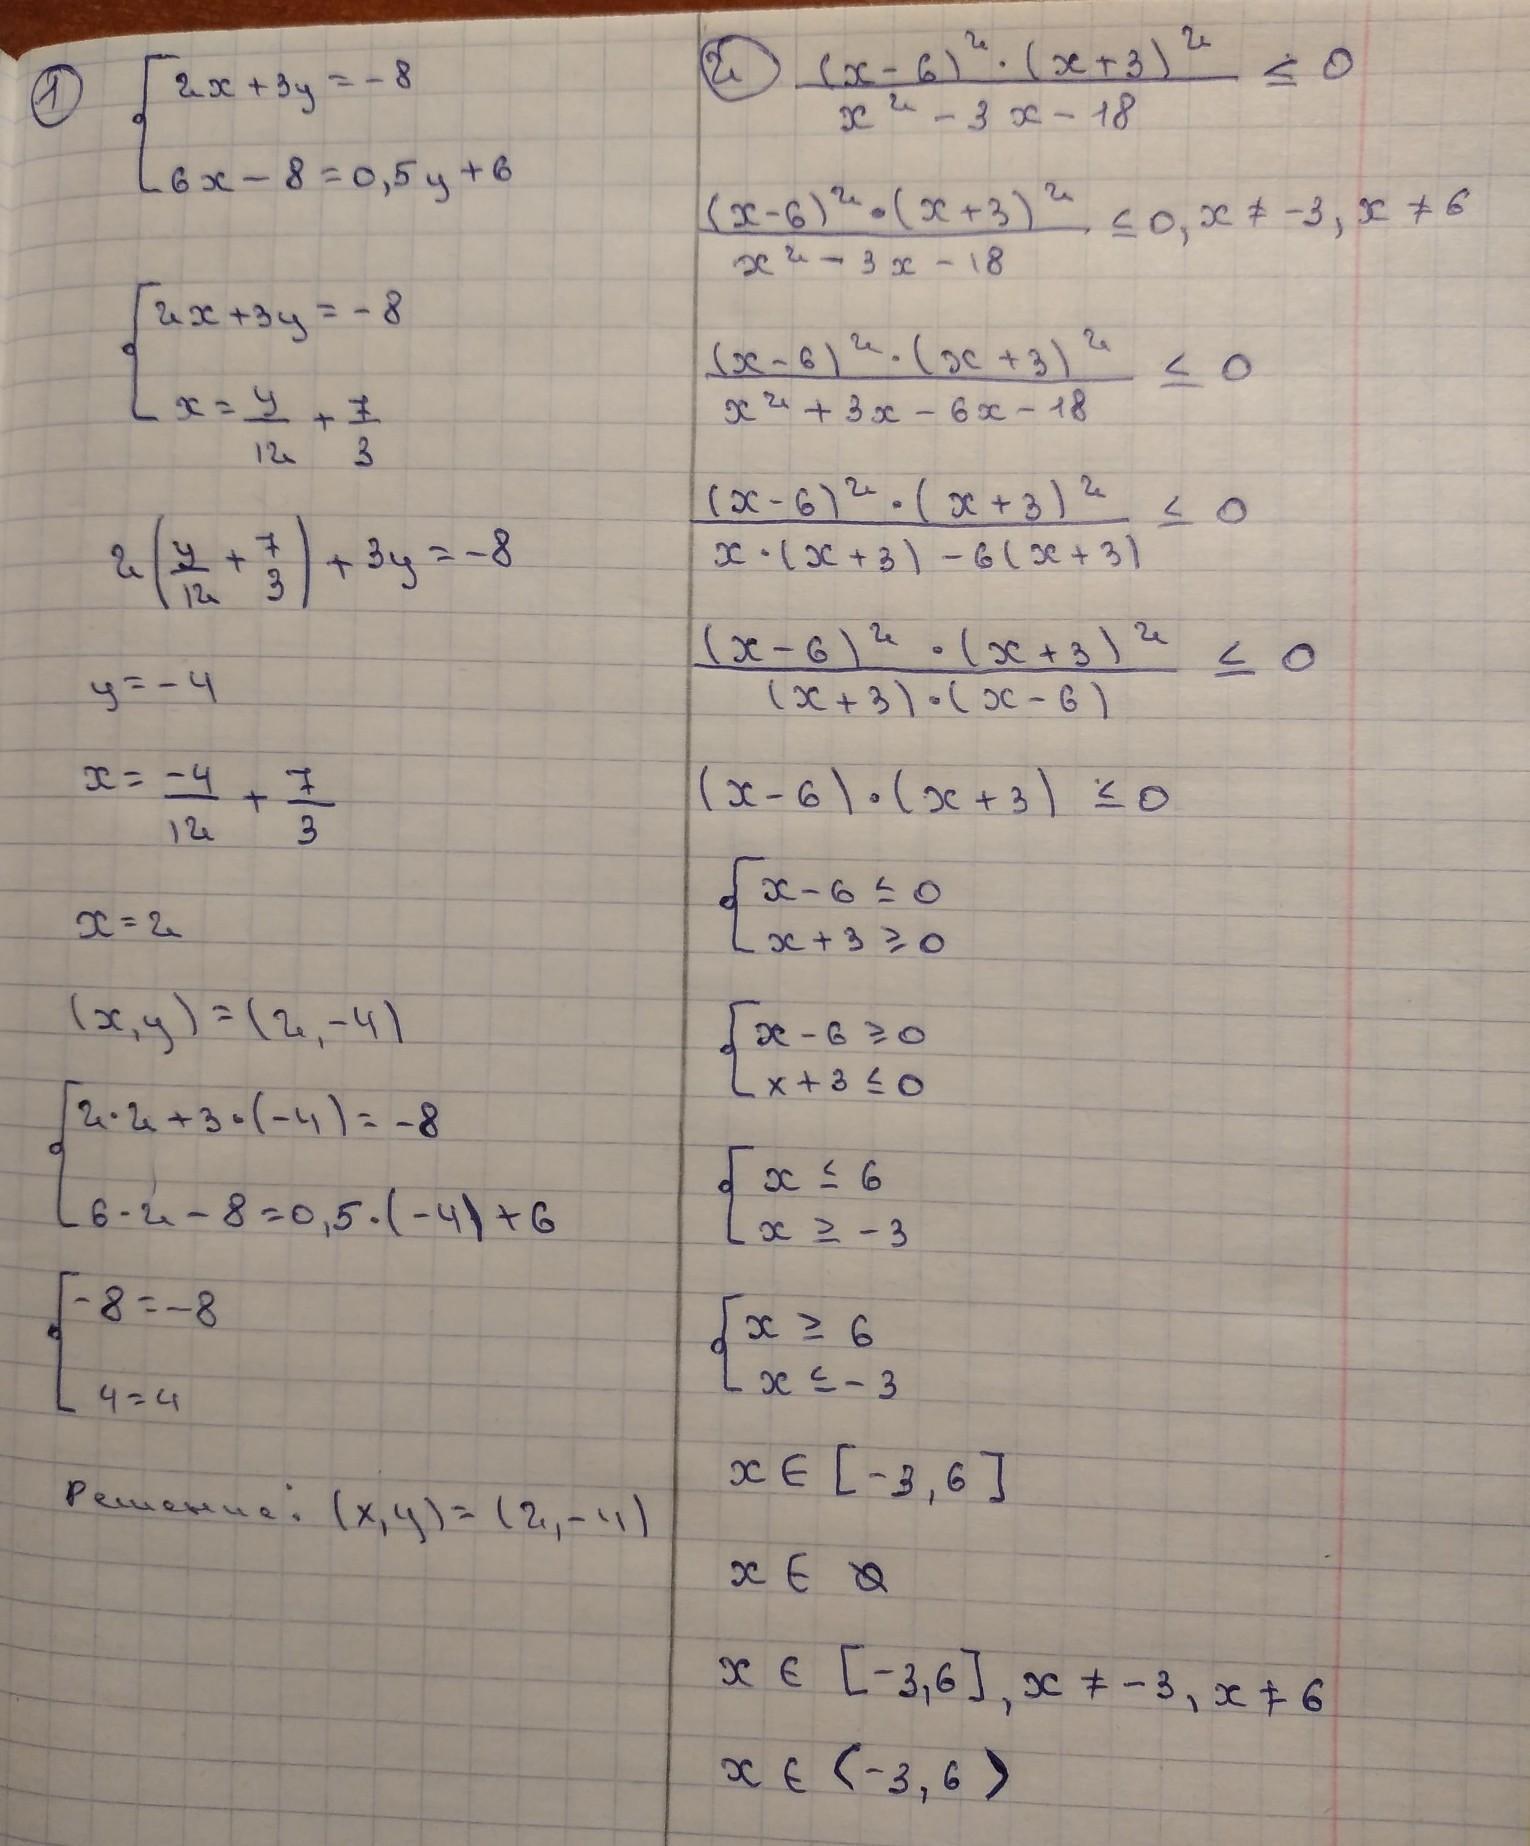 1) { 2x + 3y = -8
6x - 8 = 0,5y + 6
{ 2x + 3y = -8
x = y/12 + 7/3
2(y/12 + 7/3) + 3y = -8
y = -4
x = -4/12 + 7/3
x = 2
(x, y) = (2, -4)
{ 2·2 + 3·(-4) = -8
6·2 - 8 = 0,5·(-4) + 6
{ -8 = -8
4 = 4
Решение: (x, y) = (2, -4)
2) (x-6)²·(x+3)² / x² - 3x - 18 ≤ 0
(x-6)²·(x+3)² / x² - 3x - 18 ≤ 0, x ≠ -3, x ≠ 6
(x-6)²·(x+3)² / x² + 3x - 6x - 18 ≤ 0
(x-6)²·(x+3)² / x·(x+3) - 6(x+3) ≤ 0
(x-6)²·(x+3)² / (x+3)·(x-6) ≤ 0
(x-6)·(x+3) ≤ 0
{ x - 6 ≤ 0
x + 3 ≥ 0
{ x - 6 ≥ 0
x + 3 ≤ 0
{ x ≤ 6
x ≥ -3
{ x ≥ 6
x ≤ -3
x ∈ [-3, 6]
x ∈ ∅
x ∈ [-3, 6], x ≠ -3, x ≠ 6
x ∈ (-3, 6)